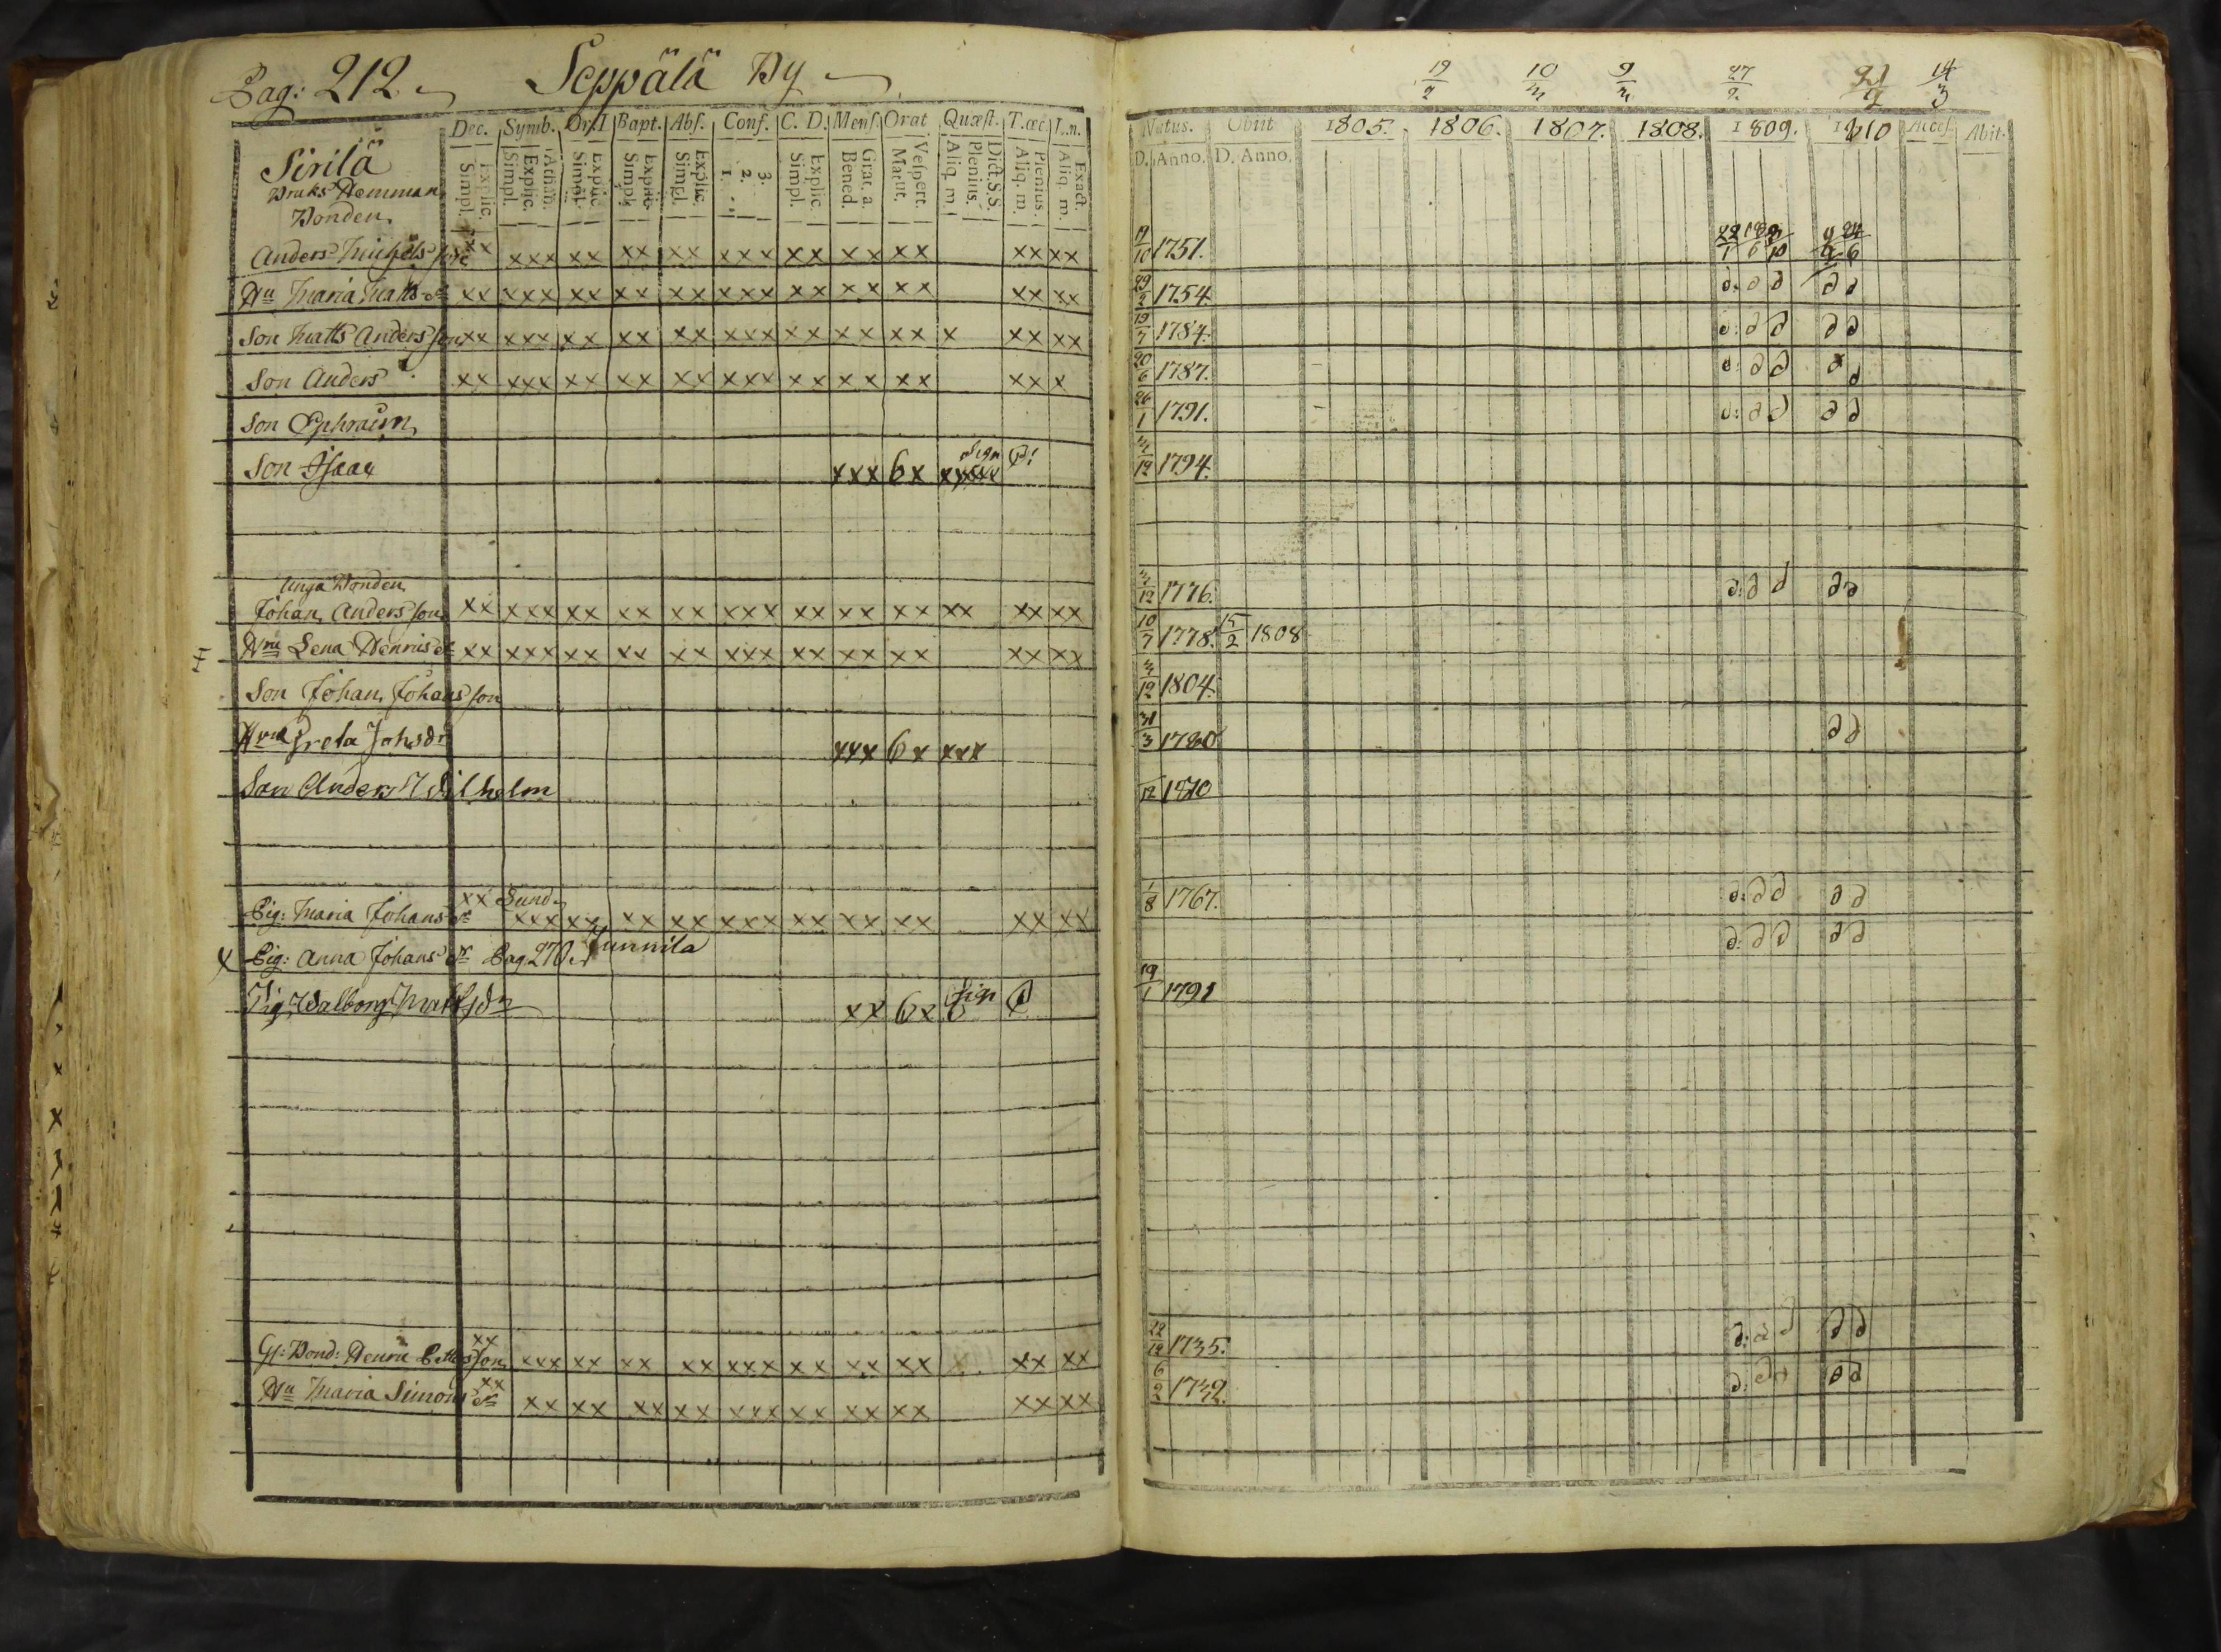 Pag: 212. Seppälä By
19/2 10/3 9/3 27/2 21/2 14/3
Dec. Symb. Or.D. Bapt. Abs. Conf. C. D. Mens. Orat. Quæst. T.œc. I..n.
Natus. Obiit 1805. 1806. 1807. 1808. 1809. 1810 Acces. Abit.
Explic. Simpl. Athan. Explic. Simpl. Explic. Simpl. Explic. Simpl. Explic. Simpl. 3. 2. 1. Explic. Simpl. Grat. a. Bened. Vespert. Matut. Dict.S.S. Plenius. Aliq. m. Plenius. Aliq. m. Exact. Aliq. m.
D. Anno. D. Anno.
Sirilä
Bruks Hemman
Bonden
Anders Michels son xx xxx xx xx xx xxx xx xx xx xx xx 19/10 1751.
Hu Maria Matts dr xx xxx xx xx xx xxx xx xx xx xx xx 29/2 1754. d: d d d d
Son Matts Anders son xx xxx xx xx xx xxx xx xx xx x xx xx 19/7 1784. d: d d d d
Son Anders xx xxx xx xx xx xxx xx xx xx xx x 20/6 1787. d: d d x d
Son Ephraim 26/1 1791. d: d d d d
Son Isaac xxx 6x 3/12 1794.
Unga Bonden
Johan Anders son xx xxx xx xx xx xxx xx xx xx xx xx xx 3/12 1776. d: d d d d
Hru Lena Henrics dr xx xxx xx xx xx xxx xx xx xx xx xx 10/7 1778. 15/2 1808
Son Johan Johans son 3/12 1804.
Hru Greta Johsdr xxx 6x xxx 31/3 1780 d d
Son Anders Wilhelm /12 1810
Pig: Maria Johans dr xx Lund xxx xx xx xx xxx xx xx xx xx xx 1/8 1767. d: d d d d
x Pig: Anna Johans dr Pag 270. Junnila d: d d d d
Pig: Walborg Mattsdr xx 6x 19/1 1791
Gl: Bond: Henric Matts son xx xxx xx xx xx xxx xx xx xx xx xx 22/12 1735. d: d d d d
Hu Maria Simons dr xx xx xx xx xx xxx xx xx xx xx xx 6/2 1732. d: d d d d